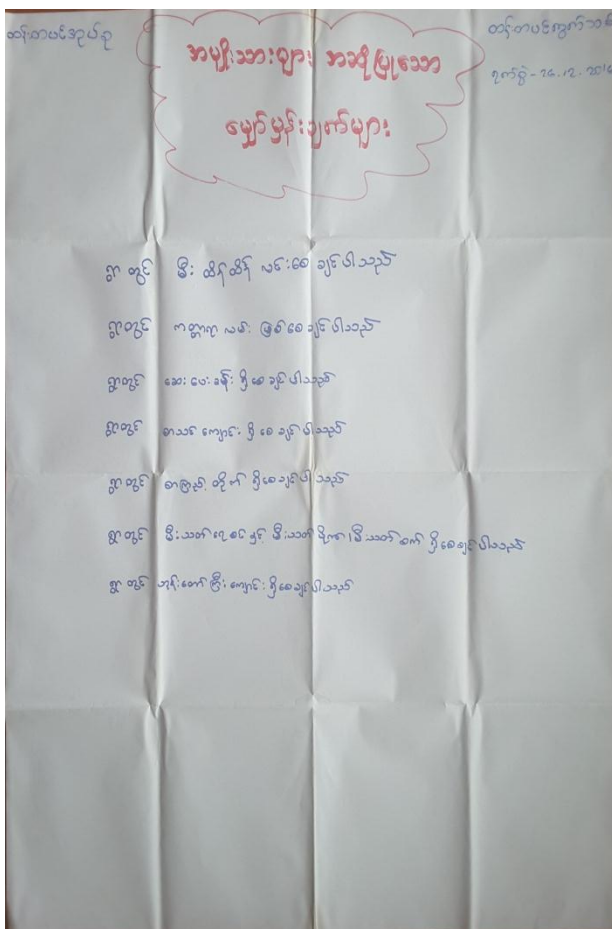 တန်းတပင်အုပ်စု
တန်းတပင်ကွက်သစ်
ရက်စွဲ - 26.12.2016
အမျိုးသားများ အဆိုပြုသော
မျှော်မှန်းချက်များ
ရွာတွင် မီး ထိန်ထိန် လင်းစေချင်ပါသည်
ရွာတွင် ကတ္တရာ လမ်း ဖြစ်စေချင်ပါသည်
ရွာတွင် ဆေး ပေး ခန်း ရှိစေချင်ပါသည်
ရွာတွင် စာသင် ကျောင်း ရှိစေချင်ပါသည်
ရွာတွင် စာကြည့် တိုက် ရှိစေချင်ပါသည်
ရွာတွင် မီးသတ် ရေစင် နှင့် မီးသတ် မီးသတ် စက် ရှိစေချင်ပါသည်
ရွာတွင် ဘုန်းတော်ကြီး ကျောင်း ရှိစေချင်ပါသည်